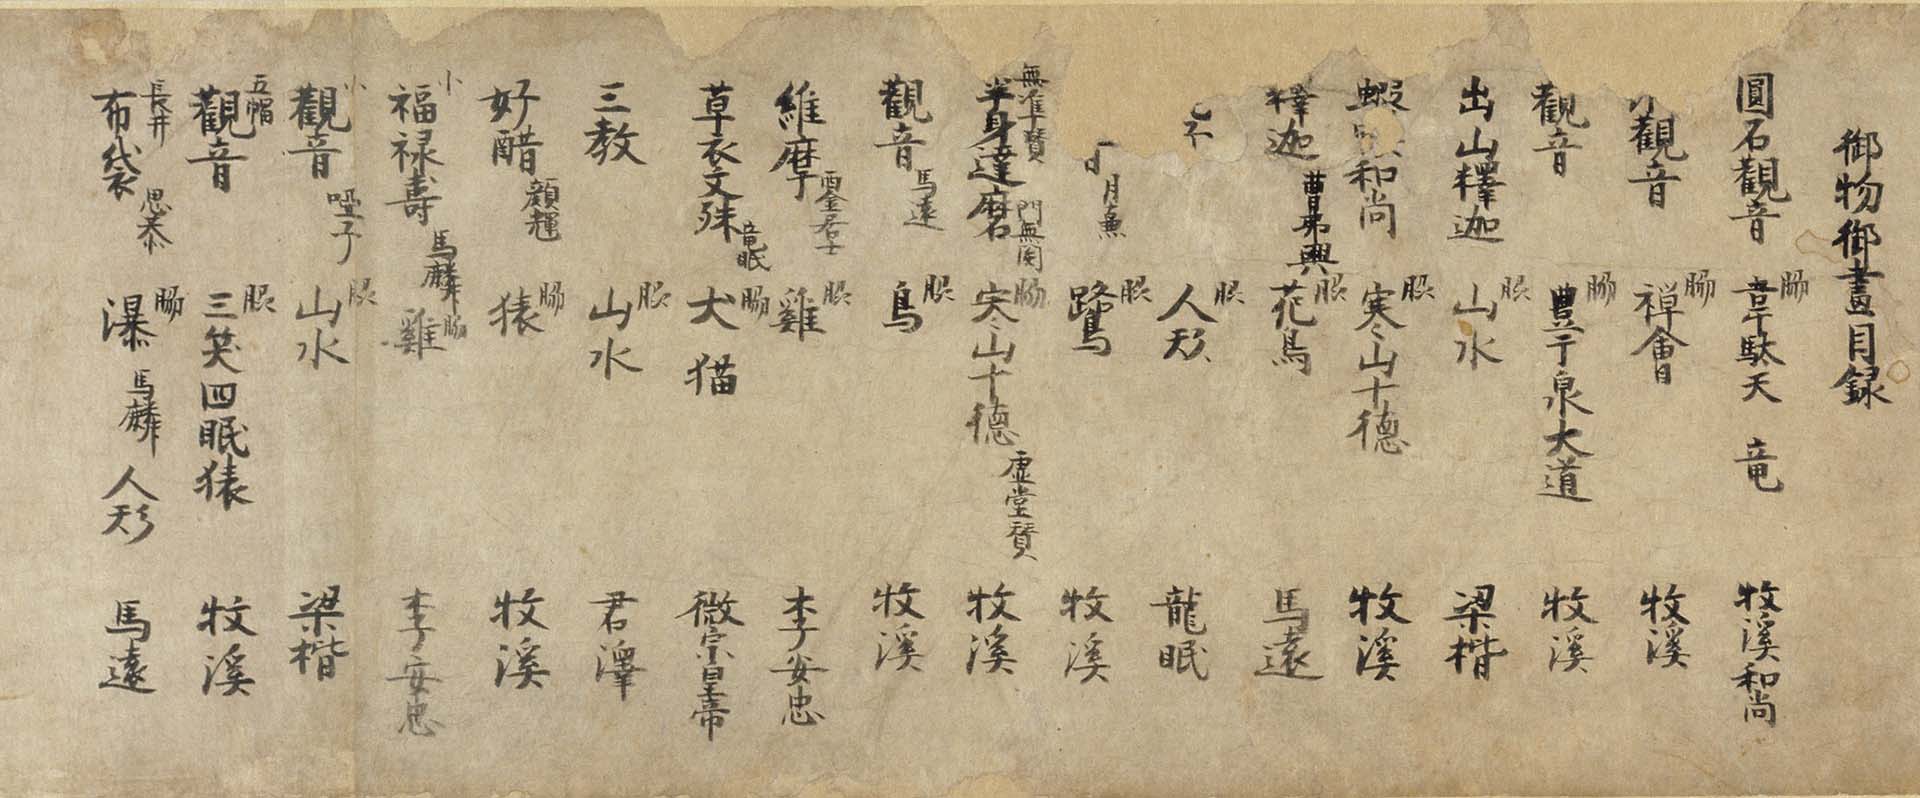 御物御畫目録
圓石觀音 脇 韋駄天 竜 牧溪和尚
觀音 脇 禅會 牧溪
觀音 脇 豊干泉大道 牧溪
出山釋迦 脇 山水 梁楷
蝦 和尚 脇 寒〻山十德 牧溪
釋迦 曹弗興 脇 花鳥 馬遠
脇 人形 龍眠
月 脇 鷺 牧溪
無准賛 半身達磨 門無関 脇 寒〻山十德 虚堂賛 牧溪
觀音 馬遠 脇 鳥 牧溪
維摩 西金居士 脇 雞 李安忠
草衣文殊 竜眠 脇 犬 猫 微宗皇帝
三教 脇 山水 君澤
好醋 顔輝 脇 猿 牧溪
小 福禄壽 馬麟 脇 雞 李安忠
小 觀音 啞子 脇 山水 梁楷
五幅 觀音 脇 三笑四眠猿 牧溪
長井 布袋 思恭 脇 瀑 馬麟 人形 馬遠